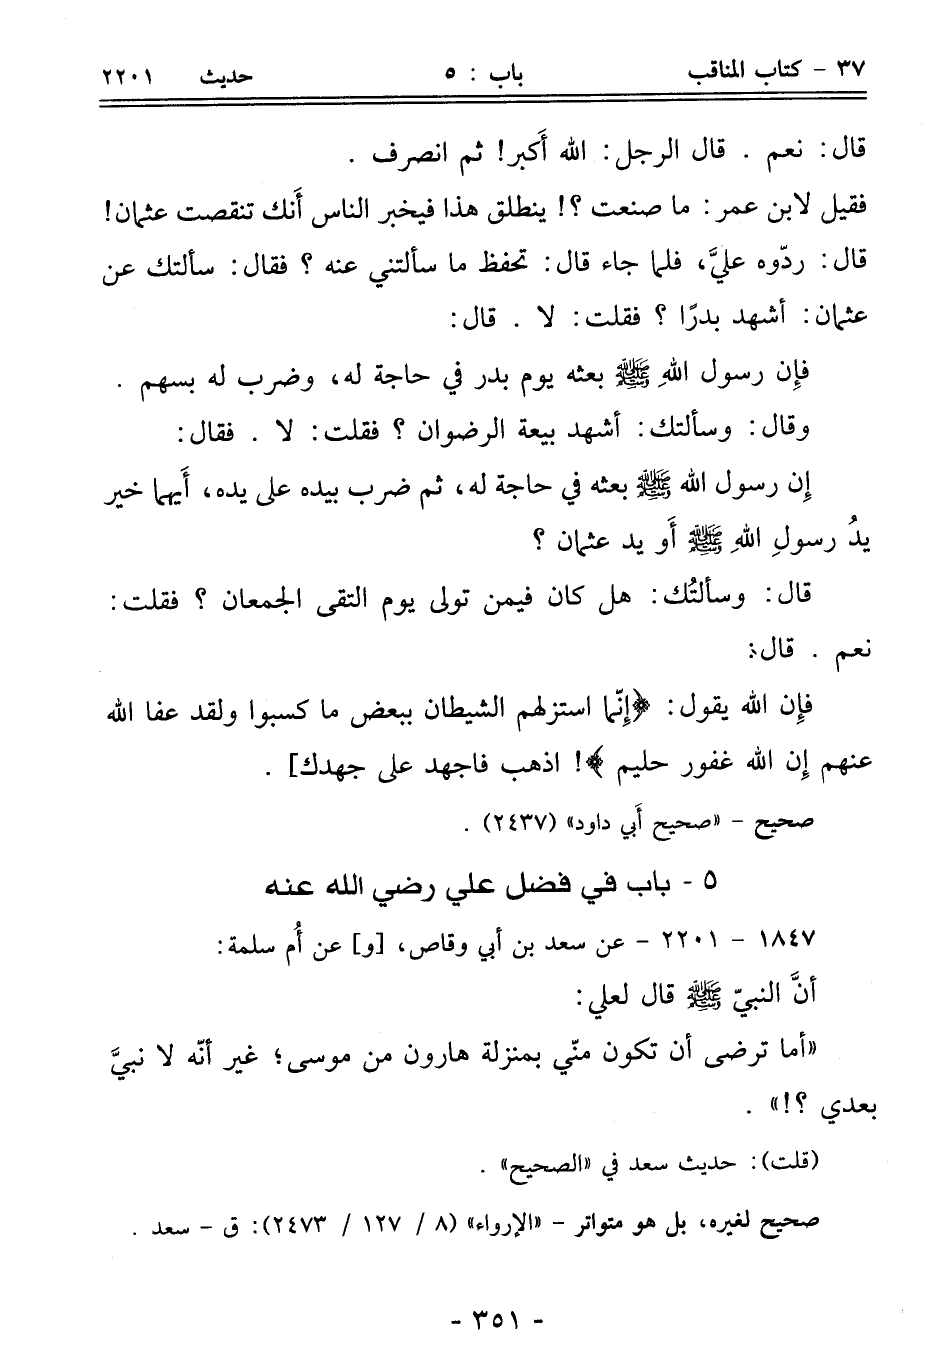 ٣٧ - كتاب المناقب باب : ٥ حديث ٢٢٠١
قال: نعم . قال الرجل: الله أَكبر! ثم انصرف .
فقيل لابن عمر: ما صنعت ؟! ينطلق هذا فيخبر الناس أَنك تنقصت عثمان!
قال: ردّوه عليَّ، فلما جاء قال: تحفظ ما سألتني عنه ؟ فقال: سألتك عن
عثمان: أشهد بدرًا ؟ فقلت: لا . قال:
فإِن رسول اللهِ ﷺ بعثه يوم بدر في حاجة له، وضرب له بسهم .
وقال: وسألتك: أشهد بيعة الرضوان ؟ فقلت: لا . فقال:
إِن رسول الله ﷺ بعثه في حاجة له، ثم ضرب بيده على يده، أَيهما خير
يدُ رسولِ اللهِ ﷺ أَو يد عثمان ؟
قال: وسألتُك: هل كان فيمن تولى يوم التقى الجمعان ؟ فقلت:
نعم . قال:
فإِن الله يقول: ﴿إِنّما استزلهم الشيطان ببعض ما كسبوا ولقد عفا الله
عنهم إِن الله غفور حليم﴾! اذهب فاجهد على جهدك] .
صحيح - «صحيح أَبي داود» (٢٤٣٧) .
٥ - باب في فضل علي رضي الله عنه
١٨٤٧ - ٢٢٠١ - عن سعد بن أبي وقاص، [و] عن أُم سلمة:
أنَّ النبيّ ﷺ قال لعلي:
«أما ترضى أن تكون منّي بمنزلة هارون من موسى؛ غير أنّه لا نبيَّ
بعدي ؟!» .
(قلت): حديث سعد في «الصحيح» .
صحيح لغيره، بل هو متواتر - «الإرواء» (٨ / ١٢٧ / ٢٤٧٣): ق - سعد .
- ٣٥١ -